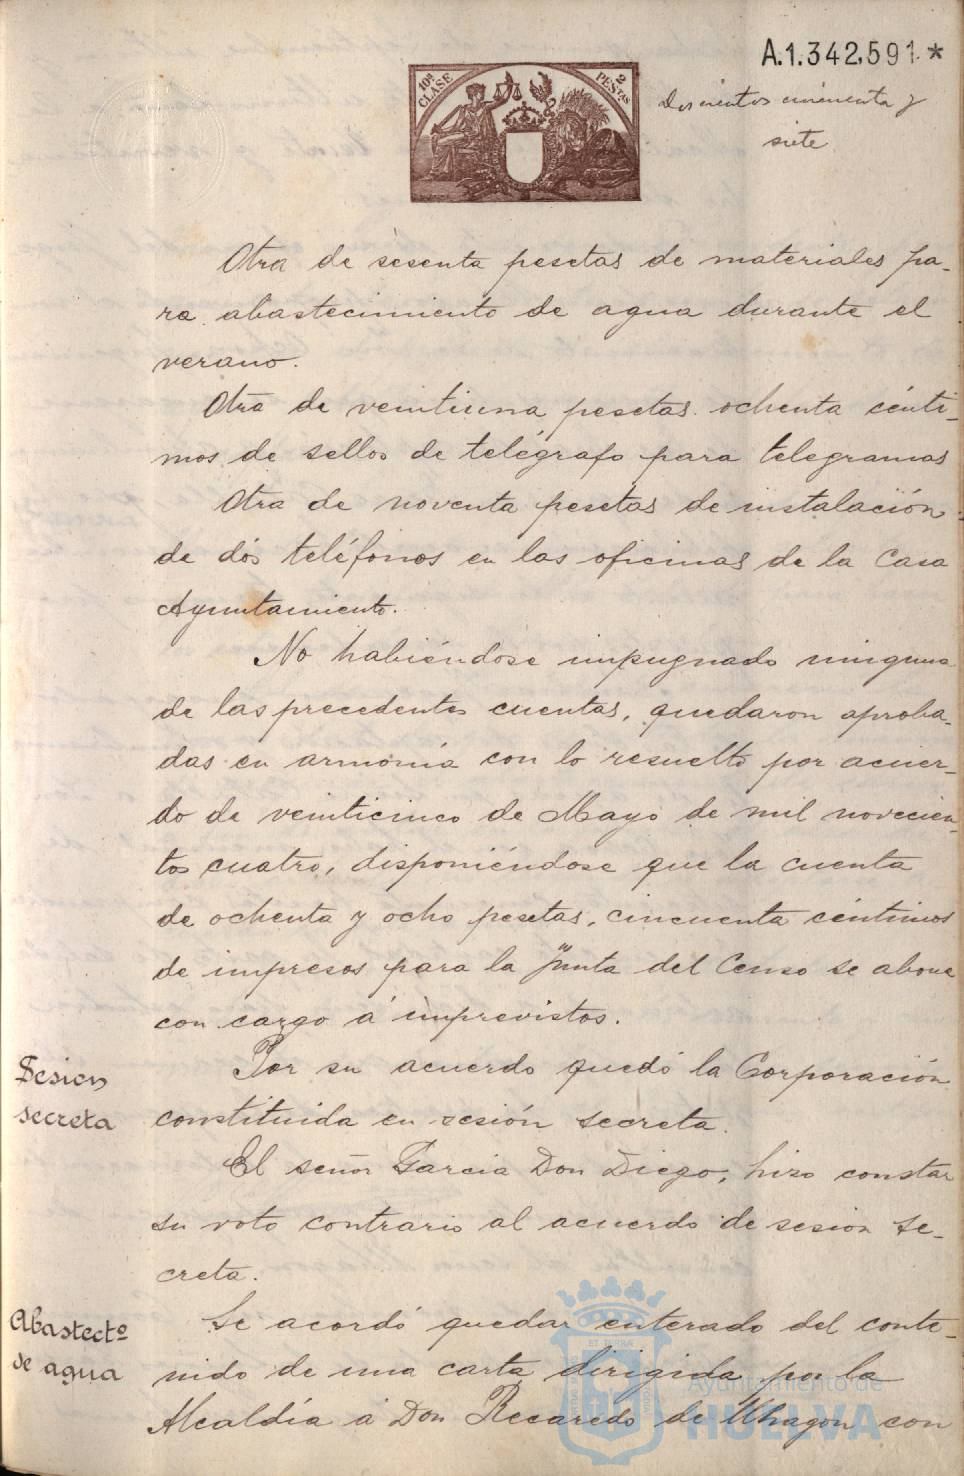 A.1.342,591.*
10ª CLASE
2 PESTAS
Doscientos cincuenta y
siete
Otra de sesenta pesetas de materiales pa-
ra abastecimiento de agua durante el
verano.
Otra de veintiuna pesetas ochenta cénti-
mos de sellos de telégrafo para telegramas
Otra de noventa pesetas de instalación
de dós teléfonos en las oficinas de la Casa
Ayuntamiento.
No habiéndose impugnado ninguna
de las precedentes cuentas, quedaron aproba-
das en armonía con lo resuelto por acuer-
do de veinticinco de Mayo de mil novecien-
tos cuatro, disponiéndose que la cuenta
de ochenta y ocho pesetas, cincuenta céntimos
de impresos para la Junta del Censo se abone
con cargo á imprevistos.
Sesion
secreta
Por su acuerdo quedó la Corporación
constituida en sesión secreta.
El señor Garcia Don Diego, hizo constar
su voto contrario al acuerdo de sesion se-
creta.
Abastectº
de agua
Se acordó quedar enterado del conte-
nido de una carta dirigida por la
Alcaldía á Don Recaredo de Uhagon con
Ayuntamiento de
HUELVA